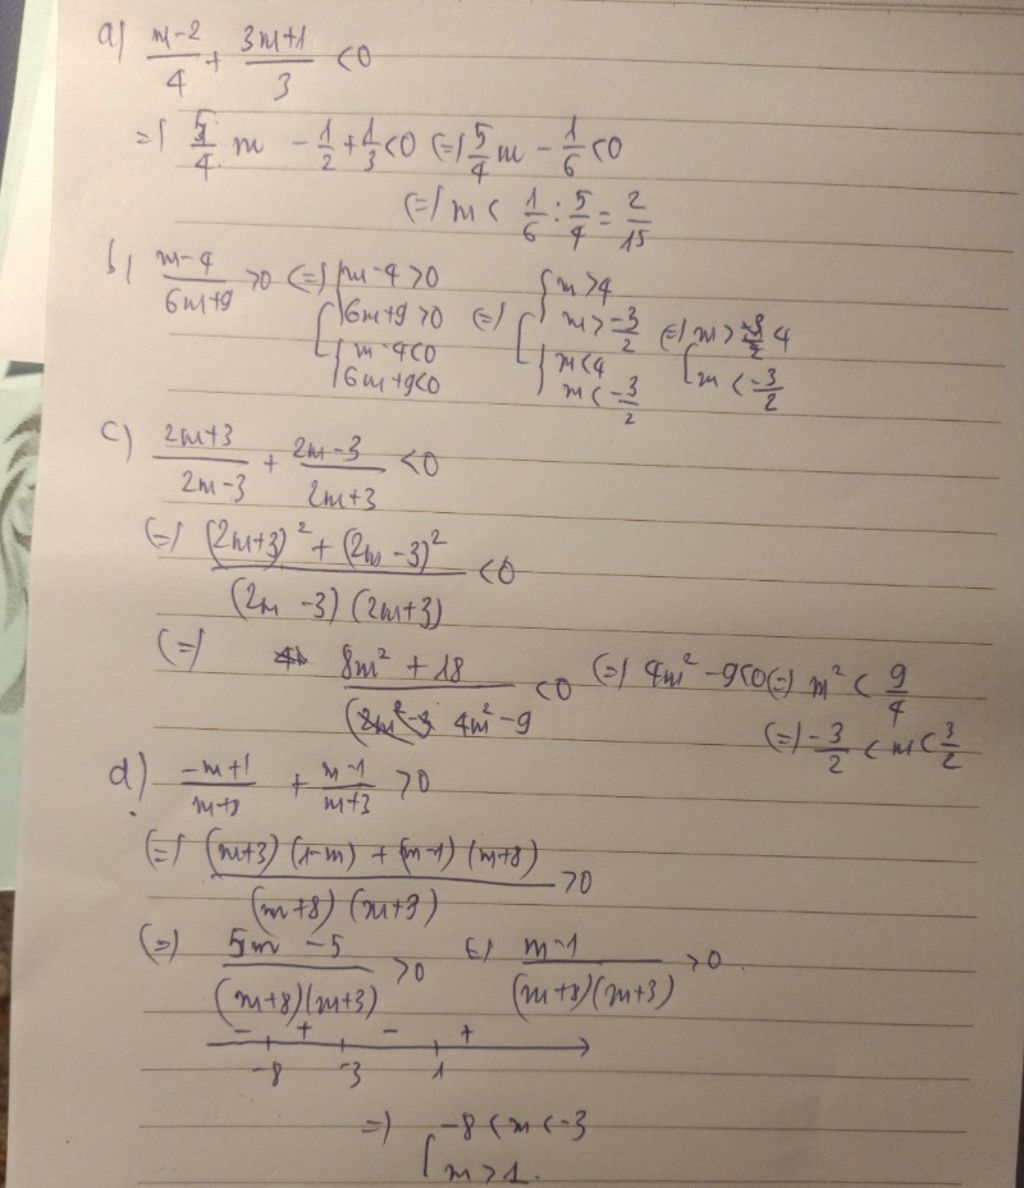 a) (m-2)/4 + (3m+1)/3 < 0
=) 5/4 m - 1/2 + 1/3 < 0 (=) 5/4 m - 1/6 < 0
(=) m < 1/6 : 5/4 = 2/15
b) (m-4)/(6m+9) > 0 (=) [ { m-4 > 0 6m+9 > 0 { m-4 < 0 6m+9 < 0 (=) [ { m > 4 m > -3/2 { m < 4 m < -3/2 (=) [ m > 4 m < -3/2
c) (2m+3)/(2m-3) + (2m-3)/(2m+3) < 0
(=) ((2m+3)² + (2m-3)²)/((2m-3)(2m+3)) < 0
(=) (8m² + 18)/(4m² - 9) < 0 (=) 4m² - 9 < 0 (=) m² < 9/4
(=) -3/2 < m < 3/2
d) (-m+1)/(m+8) + (m-1)/(m+3) > 0
(=) ((m+3)(1-m) + (m-1)(m+8))/((m+8)(m+3)) > 0
(=) (5m - 5)/((m+8)(m+3)) > 0 (=) (m-1)/((m+8)(m+3)) > 0
- + - +
-8 -3 1
=) [ -8 < m < -3
m > 1.